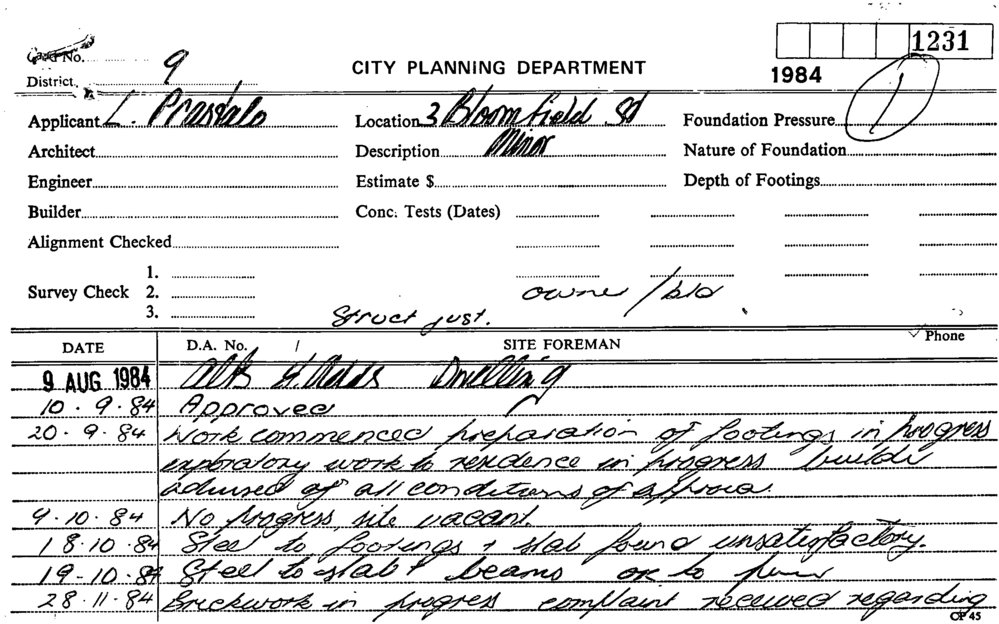 1231
Card No.
9
CITY PLANNING DEPARTMENT
1984
District
1
Applicant L. Location 3 Bloomfield St Foundation Pressure
Architect Description Minor Nature of Foundation
Engineer Estimate $ Depth of Footings
Builder Conc. Tests (Dates)
Alignment Checked
1.
Survey Check 2. owner / bld
3. Struct just.
DATE D.A. No. / SITE FOREMAN Phone
9 AUG 1984 Alts & Adds Dwelling
10.9.84 Approved
20.9.84 Work commenced preparation of footings in progress
exploratory work to residence in progress builder
advised of all conditions of approval.
9.10.84 No progress, site vacant.
18.10.84 Steel to footings + slab found unsatisfactory.
19-10-84 Steel to slab + beams ok to pour
28.11.84 Brickwork in progress complaint received regarding
CP 45